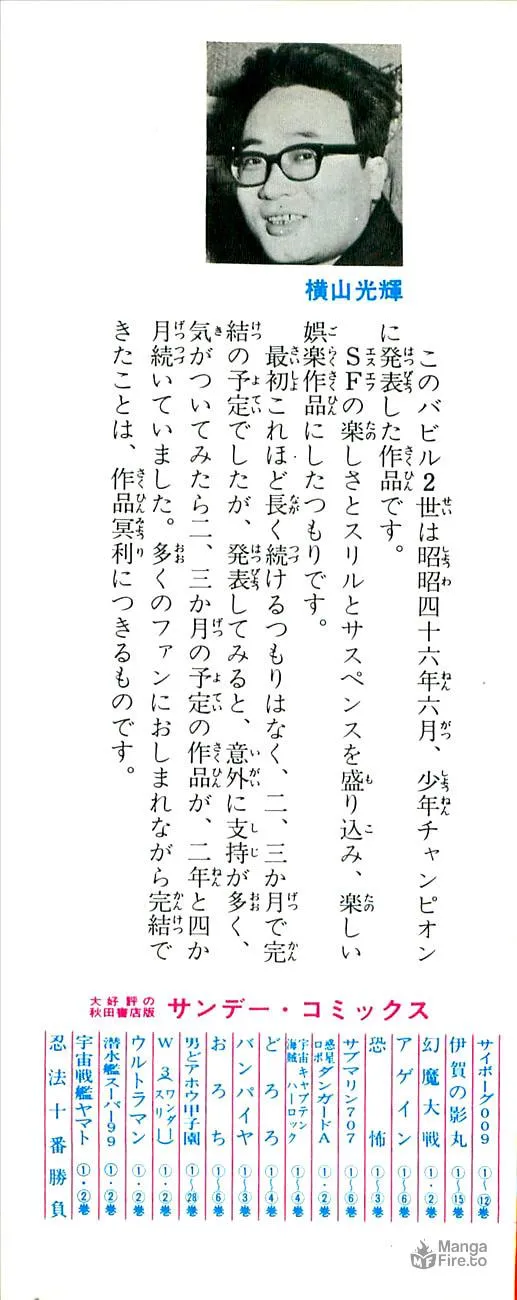 横山光輝
このバビル2世は昭昭四十六年六月、少年チャンピオン
に発表した作品です。
SFの楽しさとスリルとサスペンスを盛り込み、楽しい
娯楽作品にしたつもりです。
最初これほど長く続けるつもりはなく、二、三か月で完
結の予定でしたが、発表してみると、意外に支持が多く、
気がついてみたら二、三か月の予定の作品が、二年と四か
月続いていました。多くのファンにおしまれながら完結で
きたことは、作品冥利につきるものです。
大好評の
秋田書店版
サンデー・コミックス
サイボーグ009 ①〜⑫巻
伊賀の影丸 ①〜⑮巻
幻魔大戦 ①・②巻
アゲイン ①〜⑥巻
恐怖 ①〜③巻
サブマリン707 ①〜⑥巻
惑星ロボ ダンガードA ①・②巻
宇宙海賊 キャプテンハーロック ①〜④巻
どろろ ①〜④巻
バンパイヤ ①〜③巻
おろち ①〜⑥巻
男どアホウ甲子園 ①〜㉘巻
W3(ワンダースリー) ①・②巻
ウルトラマン ①・②巻
潜水艦スーパー99 ①・②巻
宇宙戦艦ヤマト ①・②巻
忍法十番勝負
Manga
Fire.to